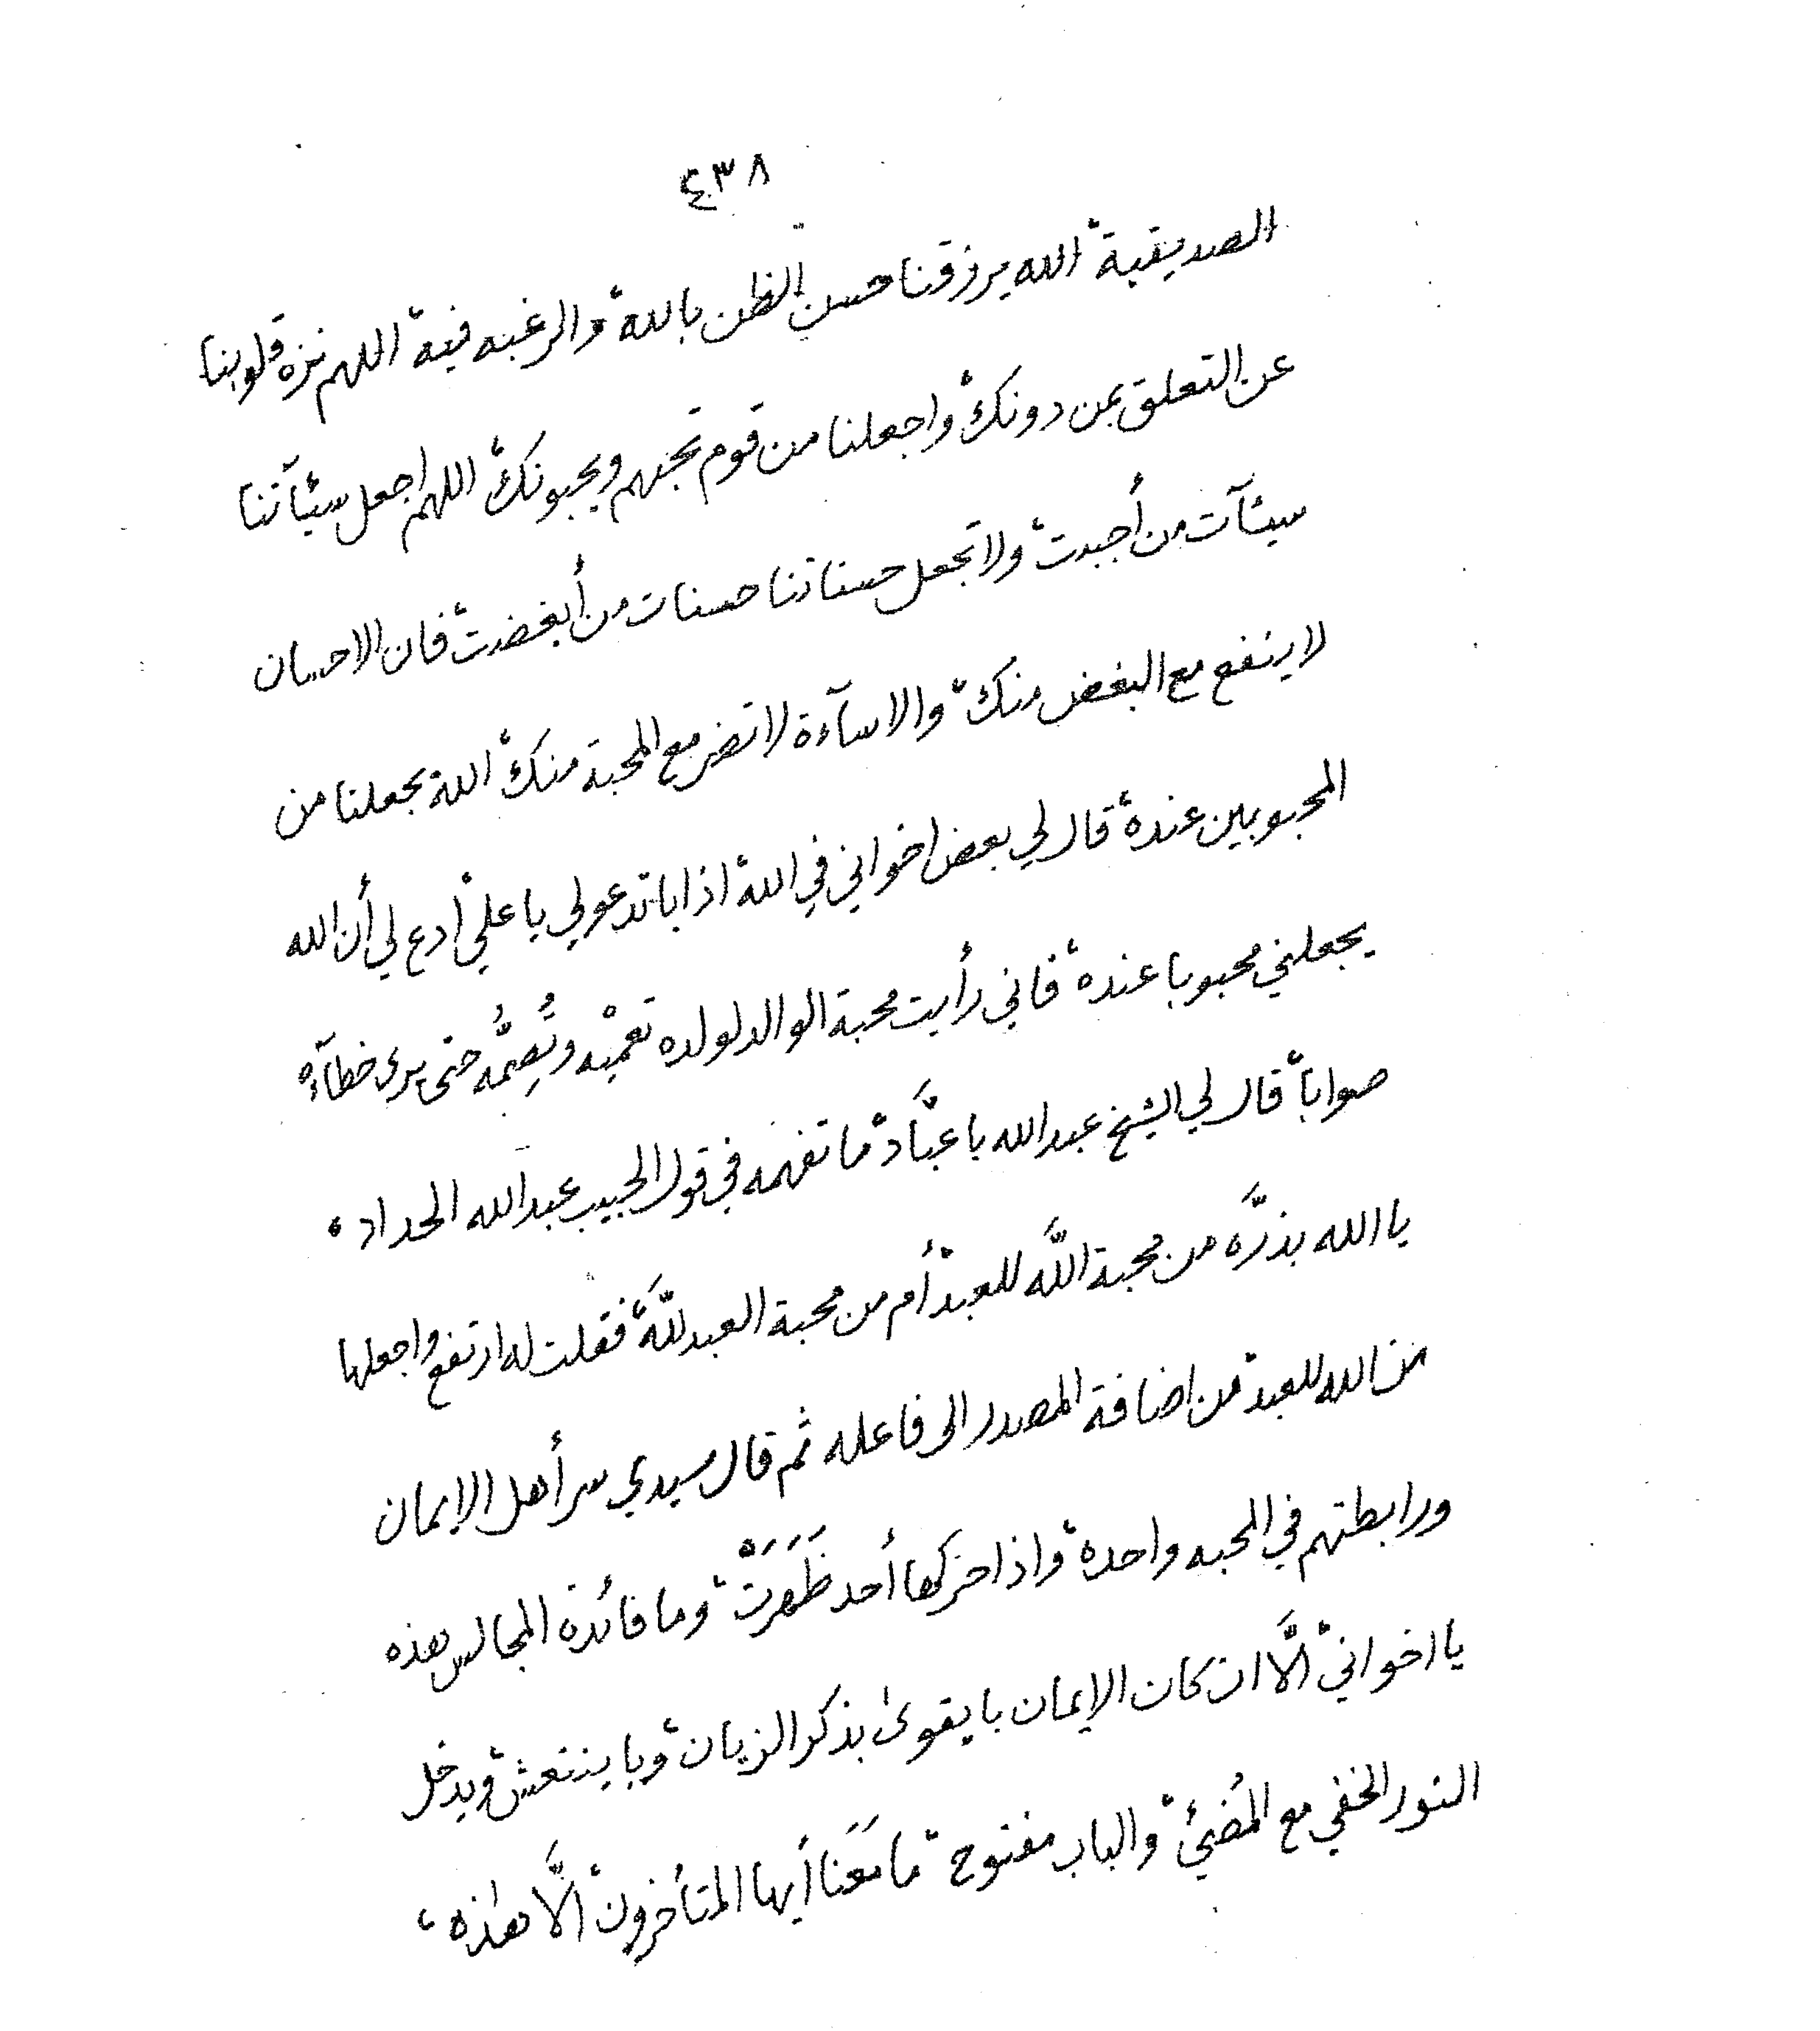 ٤٣٨
الصديقية، الله يرزقنا حسن الظن بالله، والرغبه فيه، اللهم نزه قلوبنا
عن التعلق بمن دونك، واجعلنا من قوم تحبهم ويحبونك، اللهم اجعل سيئآتنا
سيئآت من أحببت، ولا تجعل حسناتنا حسنات من أبغضت، فان الاحسان
لا ينفع مع البغض منك، والاسآءة لا تضر مع المحبة منك، الله يجعلنا من
المحبوبين عنده، قال لي بعض اخواني في الله، اذا باتدعولي يا علي، ادع لي أن الله
يجعلني محبوبا عنده، فاني رأيت محبة الوالد لولده تعميْه وتُصِمُّه حتى يرى خطآءه
صوابا، قال لي الشيخ عبدالله باعبَّاد، ما تفهمه في قول الحبيب عبدالله الحداد،
يا الله بذرَّه من محبة اللَّه للعبد، أم من محبة العبد للَّه، فقلت له ارتفع واجعلها
من الله للعبد، من اضافة المصدر الى فاعله ثم قال سيدي سر أهل الإيمان
ورابطتهم في المحبه واحده، واذا حركها أحد ظَهَرَتْ، وما فائدة المجالس هذه
يا اخواني، الَّا ان كان الإيمان بايقوى بذكر الزيان، وباينتعش، ويدخل
النور الخفي مع المُضيئ، والباب مفتوح، مامَعَنا أيها المتأخرون، الَّا هذه،